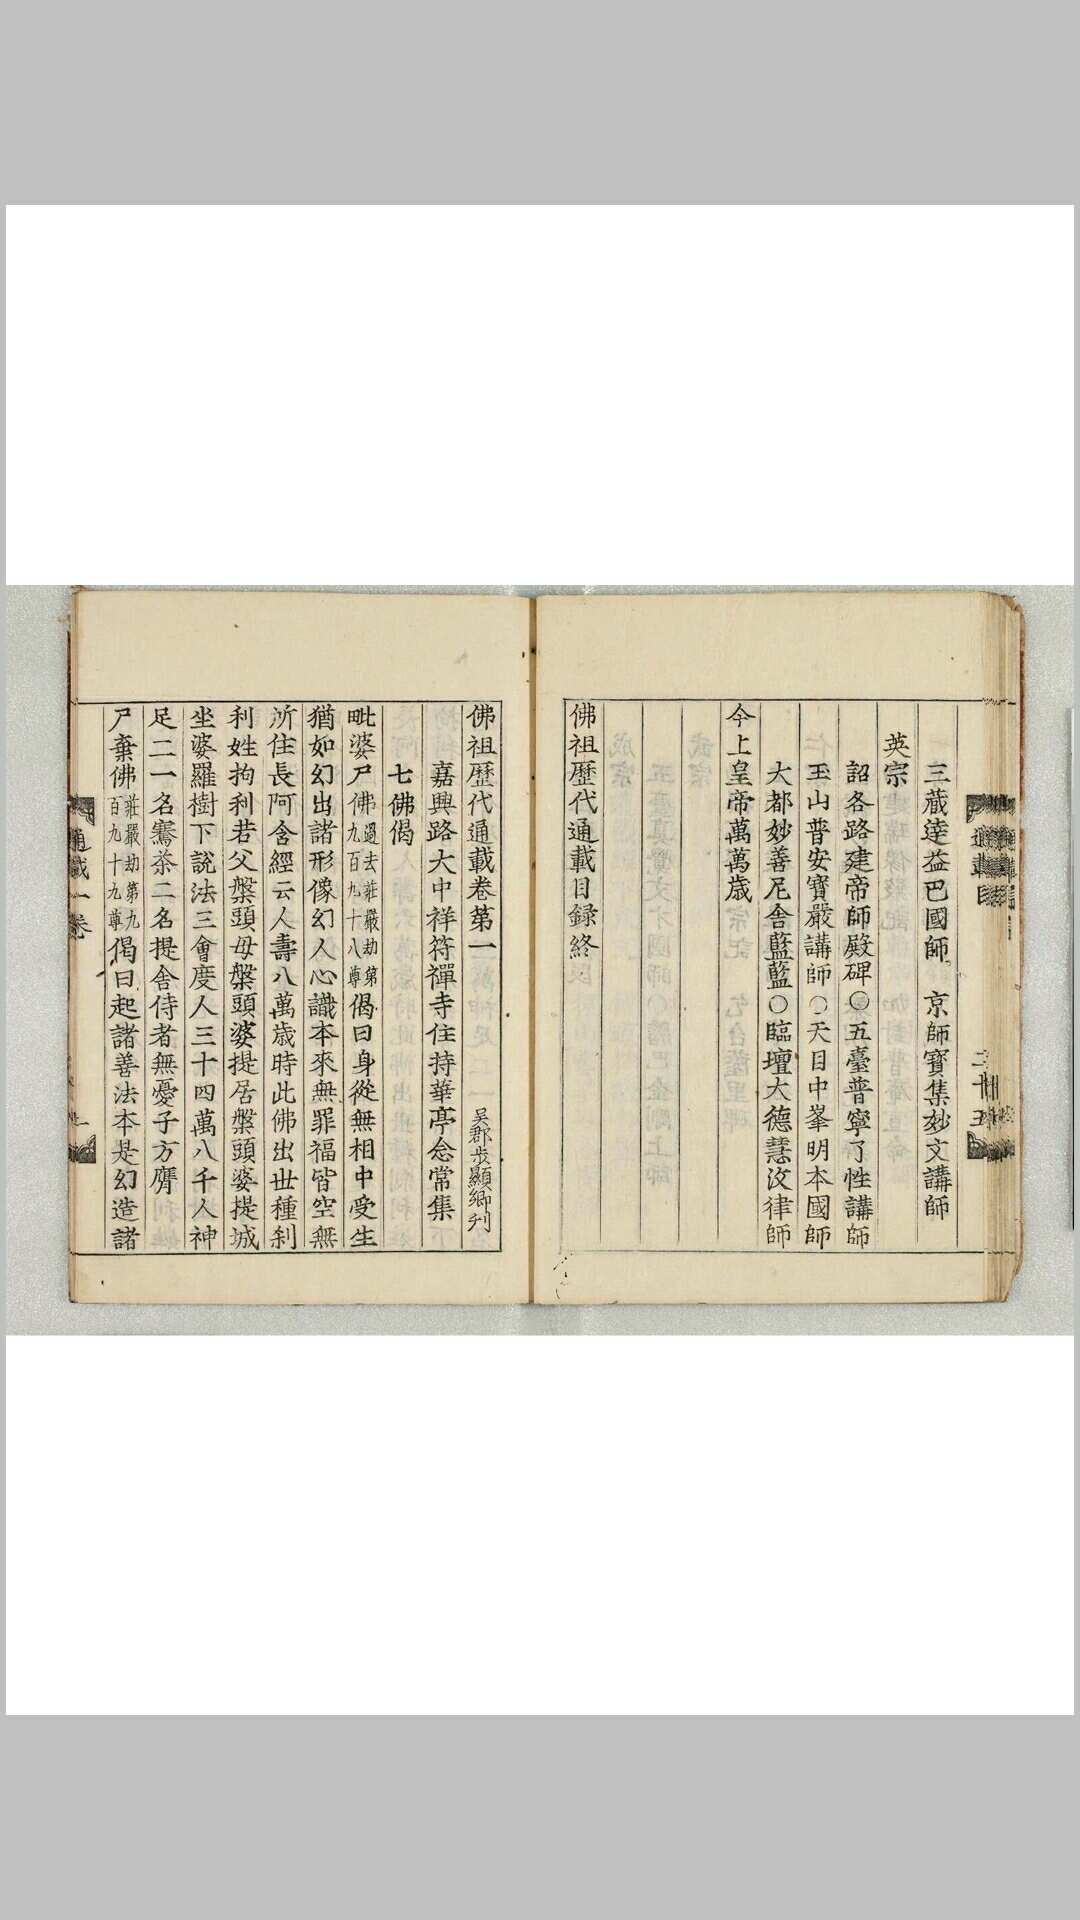 三藏達益巴國師　京師寶集妙文講師
英宗
詔各路建帝師殿碑〇五臺普寧了性講師
玉山普安寶嚴講師〇天目中峯明本國師
大都妙善尼舍藍藍〇臨壇大德慧汶律師
今上皇帝萬萬歲
佛祖歷代通載目録終
佛祖歷代通載卷第一　吳郡步顯卿刋
嘉興路大中祥符禪寺住持華亭念常集
七佛偈
毗婆尸佛過去莊嚴劫第九百九十八尊偈曰身從無相中受生
猶如幻出諸形像幻人心識本來無罪福皆空無
所住長阿含經云人壽八萬歲時此佛出世種剎
利姓拘利若父槃頭母槃頭婆提居槃頭婆提城
坐婆羅樹下說法三會度人三十四萬八千人神
足二一名騫茶二名提舍侍者無憂子方膺
尸棄佛莊嚴劫第九百九十九尊偈曰起諸善法本是幻造諸
通載一卷